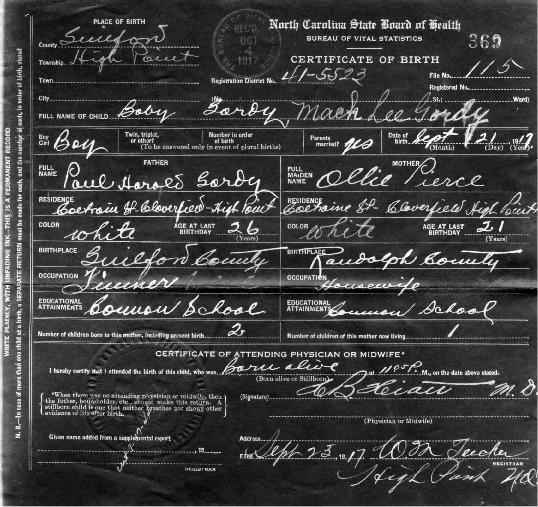 PLACE OF BIRTH
North Carolina State Board of Health
BUREAU OF VITAL STATISTICS
369
County Guilford
REC'D. OCT 4 1917
CERTIFICATE OF BIRTH
Township High Point
File No. 115
Town
Registration District No. 41-5523
Registered No.
City (No. St.; Ward)
FULL NAME OF CHILD Boby Gordy, Mack Lee Gordy
Boy Girl Boy Twin, triplet, or other? Number in order of birth (To be answered only in event of plural births) Parents married? yes Date of birth Sept 21 1917 (Month) (Day) (Year)
FATHER
MOTHER
FULL NAME Paul Harold Gordy
FULL MAIDEN NAME Ollie Pierce
RESIDENCE Coltrain St- Cloverfield-High Point
RESIDENCE Coltraine St- Cloverfield High Point
COLOR white AGE AT LAST BIRTHDAY 26 (Years)
COLOR White AGE AT LAST BIRTHDAY 21 (Years)
BIRTHPLACE Guilford County
BIRTHPLACE Randolph County
OCCUPATION Tinner
OCCUPATION Housewife
EDUCATIONAL ATTAINMENTS Common School
EDUCATIONAL ATTAINMENTS Common School
Number of children born to this mother, including present birth 2
Number of children of this mother now living 1
CERTIFICATE OF ATTENDING PHYSICIAN OR MIDWIFE*
I hereby certify that I attended the birth of this child, who was Born alive at 11 50 P. M., on the date above stated.
(Born alive or Stillborn)
(Signature) M. D.
*When there was no attending physician or midwife, then the father, householder, etc., should make this return. A stillborn child is one that neither breathes nor shows other evidence of life after birth.
(Physician or Midwife)
Given name added from a supplemental report
, 19
REGISTRAR
Address
Filed Sept 23, 1917 W. M. Tucker
REGISTRAR
High Point N.C.
WRITE PLAINLY, WITH UNFADING INK—THIS IS A PERMANENT RECORD
N. B.—In case of more than one child at a birth, a SEPARATE RETURN must be made for each, and the number of each, in order of birth, stated